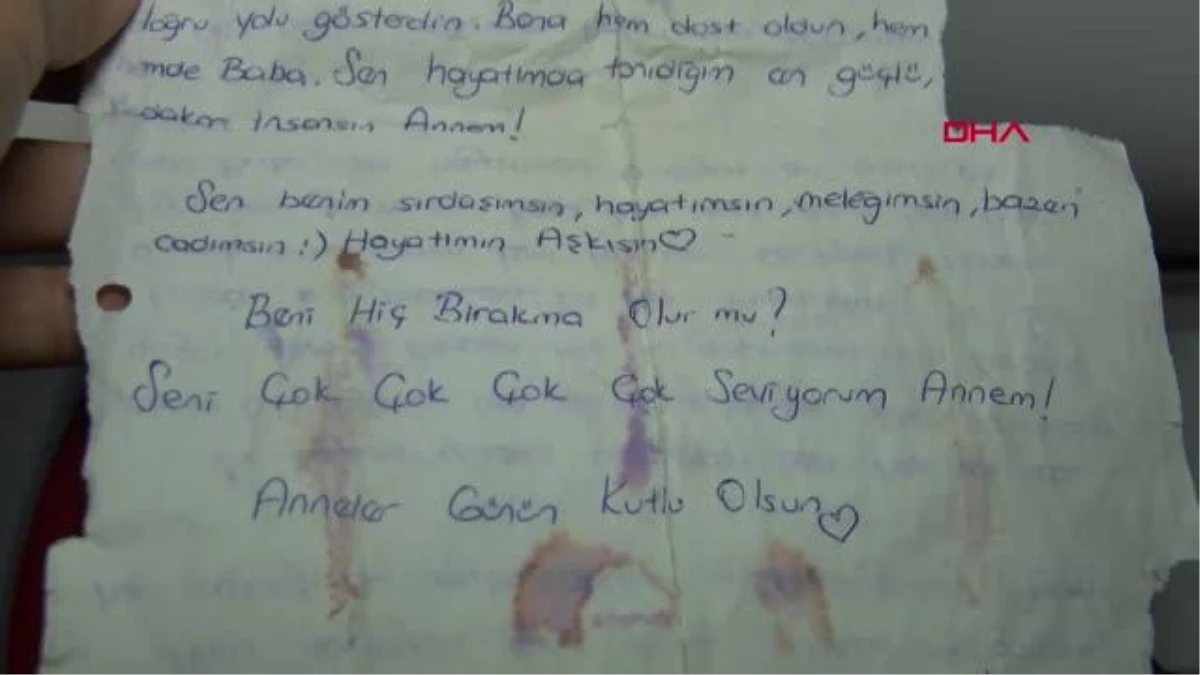 loğru yolu gösterdin. Bana hem dost oldun, hem
mde Baba. Sen hayatımda tanıdığım en güçlü,
insansın Annem!
DHA
Sen benim sırdaşımsın, hayatımsın, meleğimsin, bazen
cadımsın :) Hayatımın Aşkısın♡
Beni Hiç Bırakma Olur mu?
Seni Çok Çok Çok Çok Seviyorum Annem!
Anneler Günün Kutlu Olsun♡